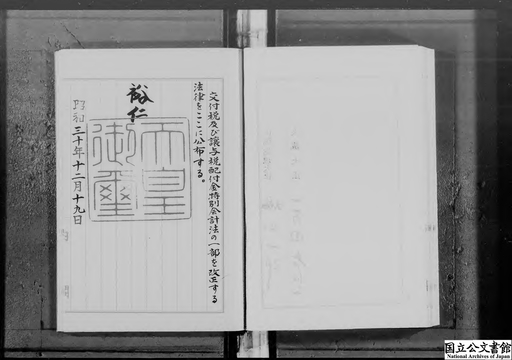 交付税及び譲与税配付金特別会計法の一部を改正する
法律をここに公布する。
裕仁
天皇
御璽
昭和三十年十二月十九日
国立公文書館
National Archives of Japan